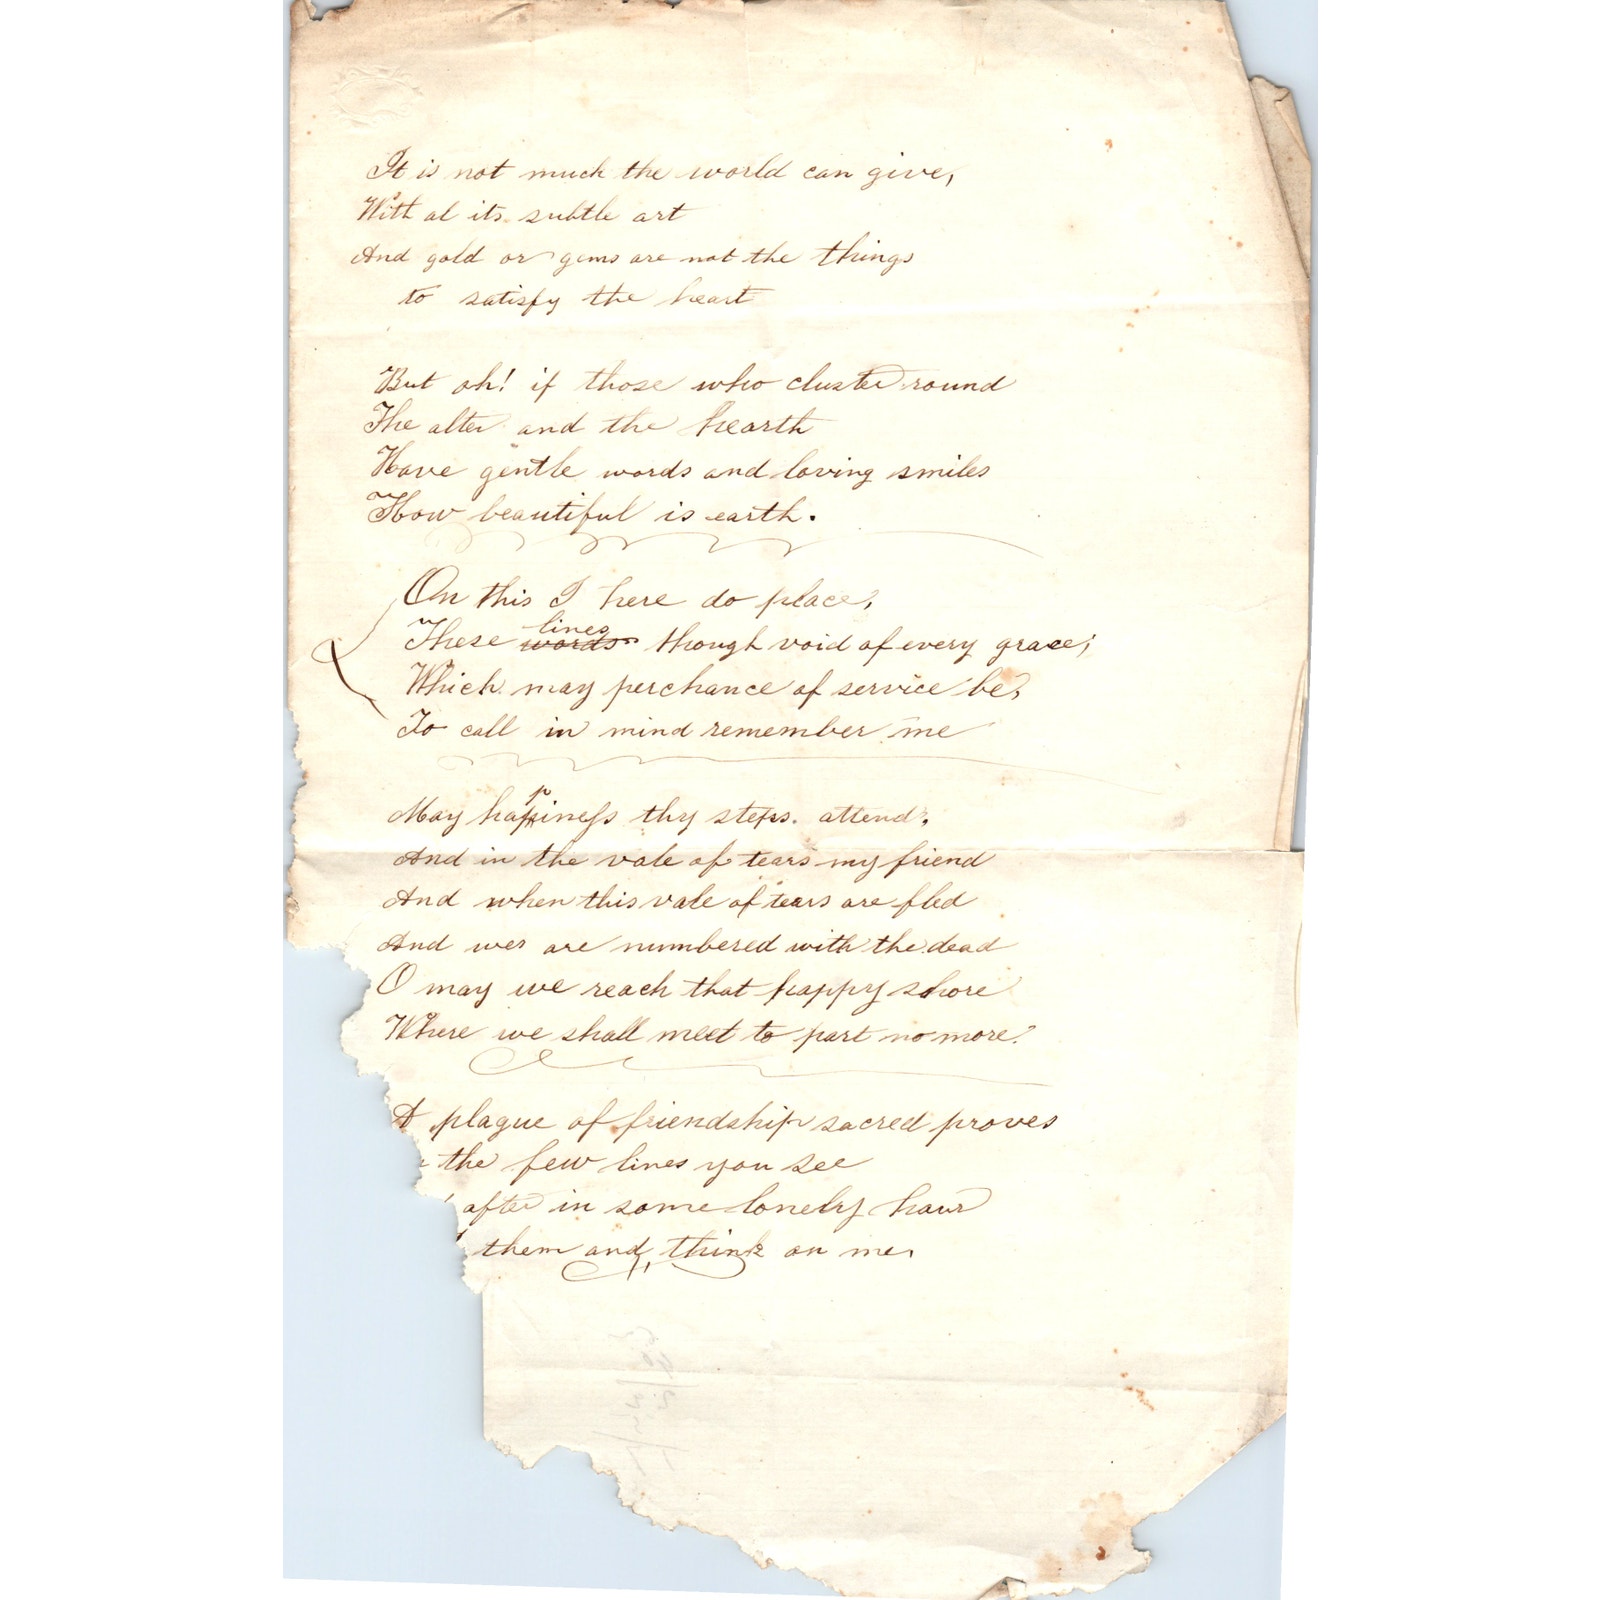 It is not much the world can give,
With al its subtle art
And gold or gems are not the things
to satisfy the heart
But oh! if those who cluster round
The alter and the hearth
Have gentle words and loving smiles
How beautiful is earth.
On this I here do place,
These words lines though void of every grace;
Which may perchance of service be,
To call in mind remember me
May happiness thy steps attend,
And in the vale of tears my friend
And when this vale of tears are fled
And we are numbered with the dead
O may we reach that happy shore
Where we shall meet to part no more.
A plague of friendship sacred proves
the few lines you see
after in some lonely hour
them and think on me.